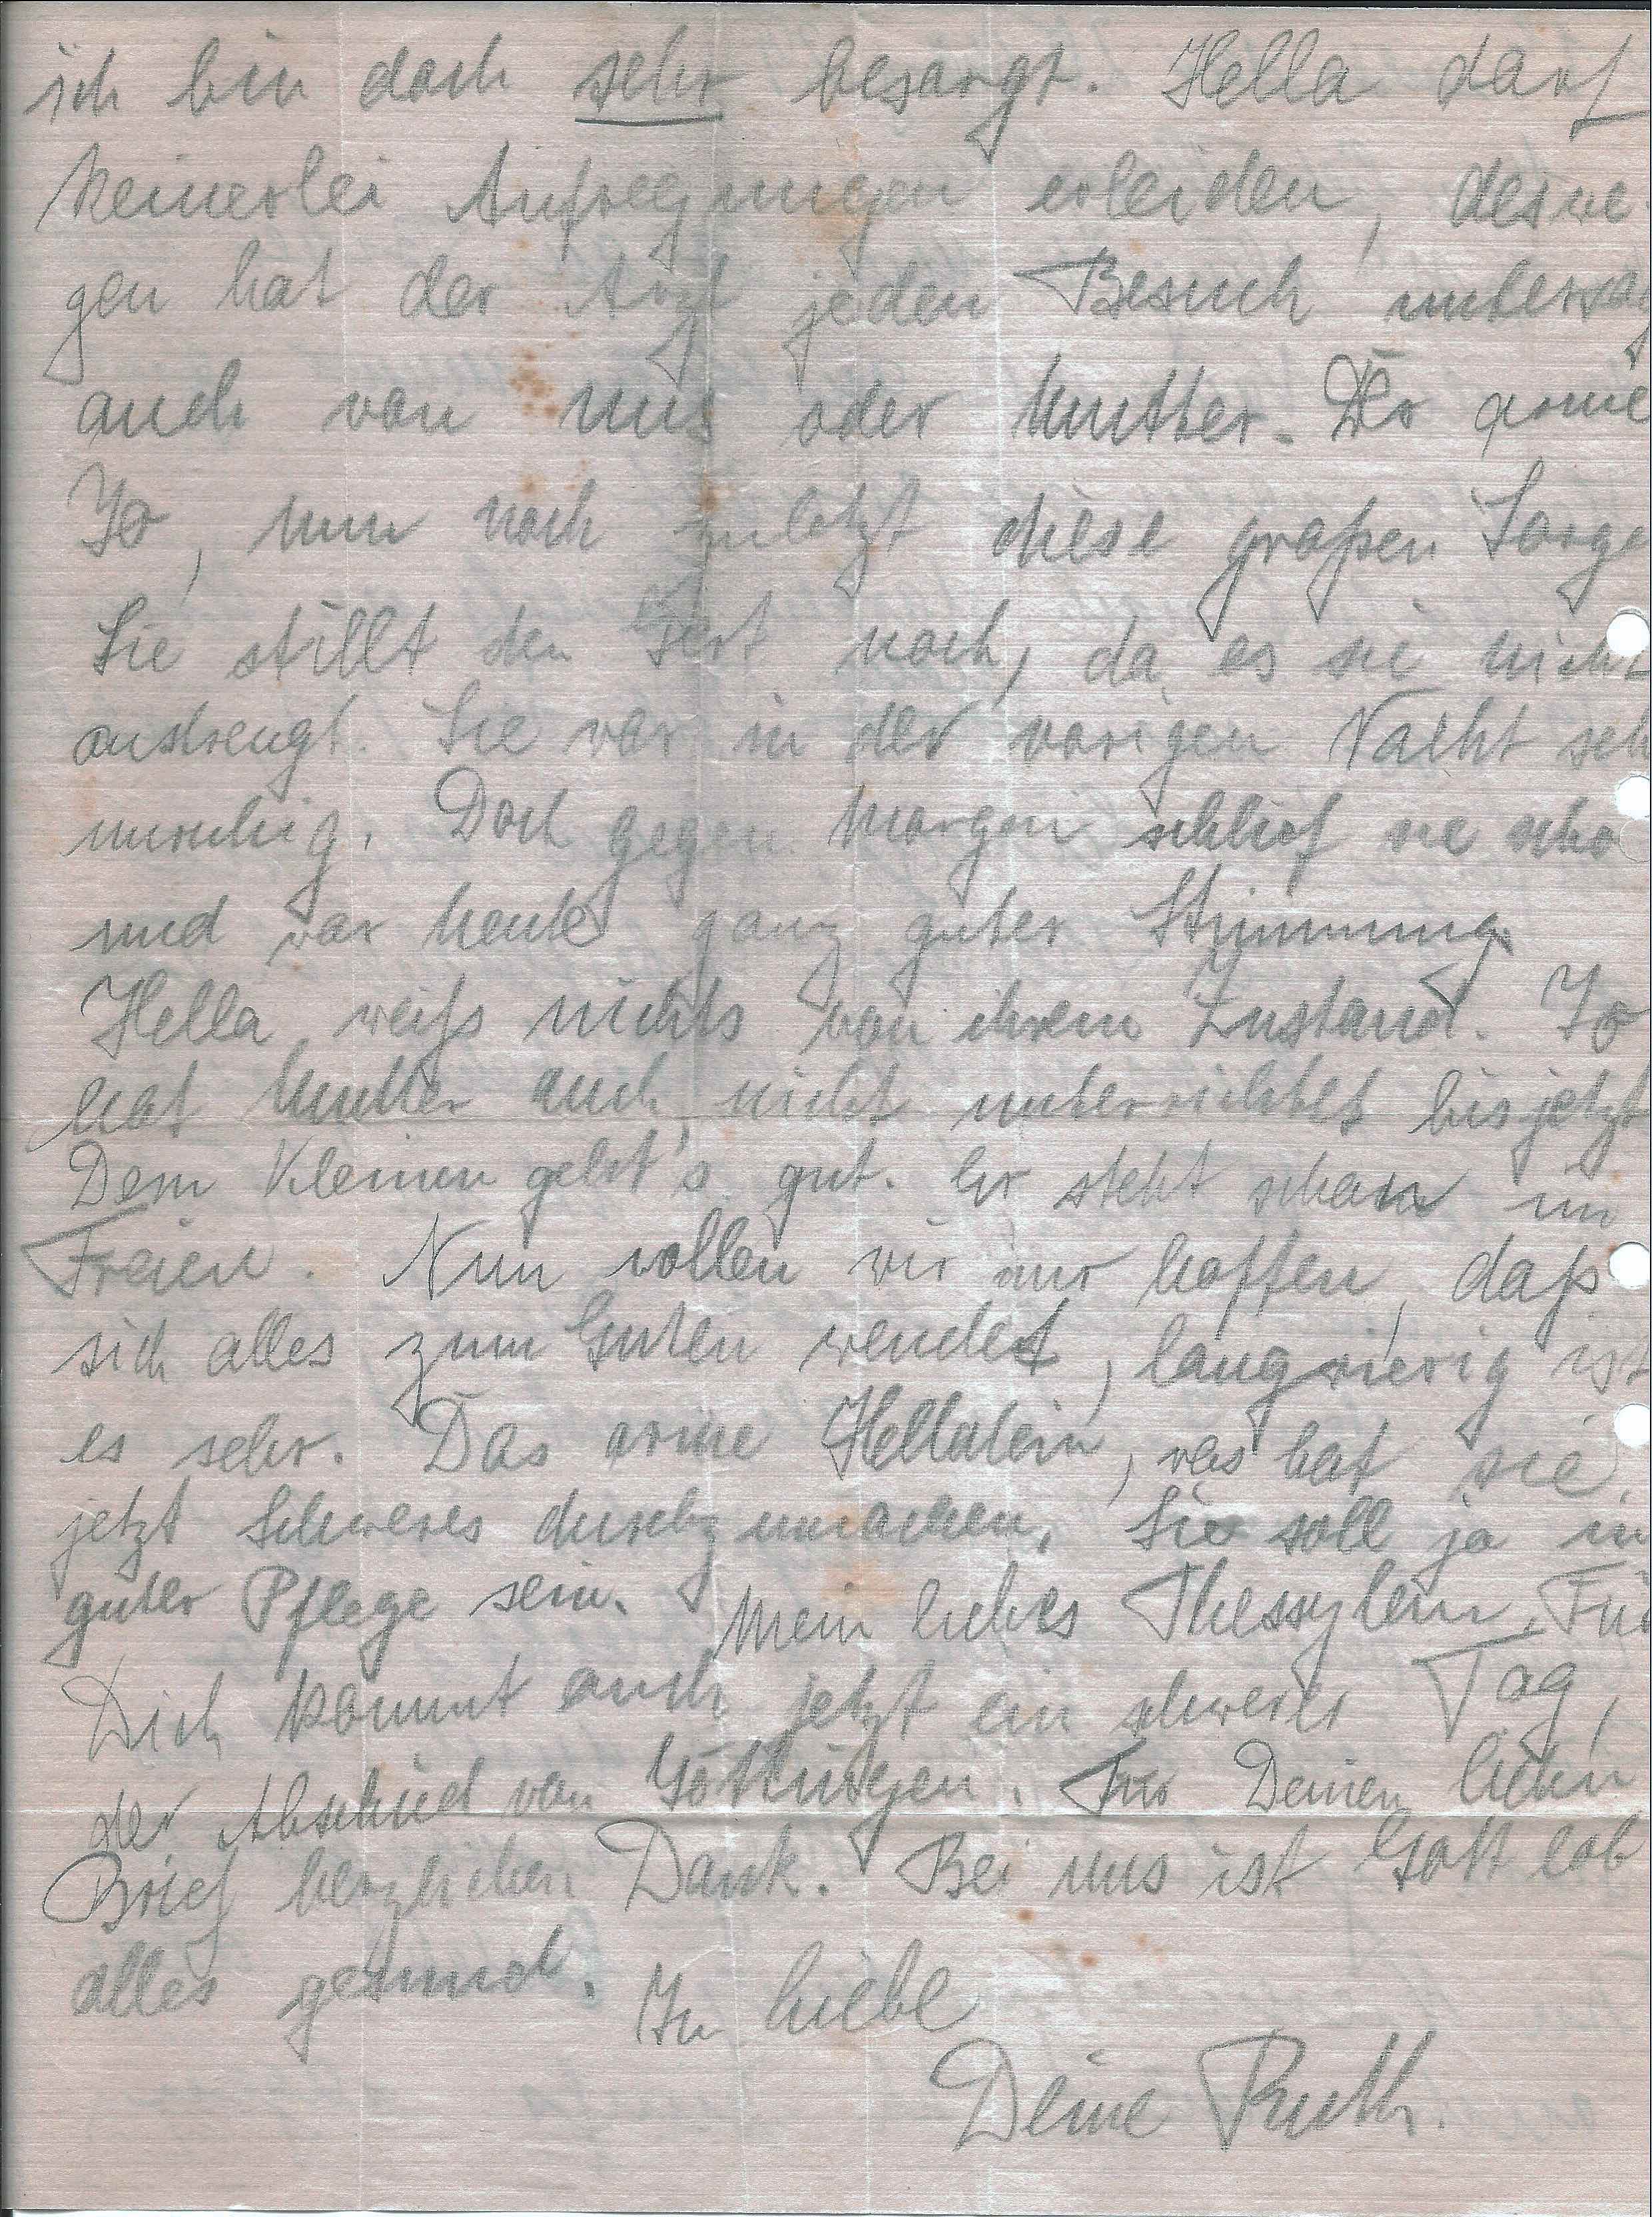 ich bin doch sehr besorgt. Hella darf
keinerlei Aufregungen erleiden, deswe
gen hat der Arzt jeden Besuch untersag
auch von uns oder Mutter. Der arme
Jo, nun noch zuletzt diese großen Sorge
Sie stillt den Gert noch, da es sie nicht
anstrengt. Sie war in der vorigen Nacht seh
unruhig. Doch gegen Morgen schlief sie scho
und war heute ganz guter Stimmung.
Hella weiß nichts von ihrem Zustand. Jo
hat Mutter auch nicht unterrichtet bis jetzt
Dem Kleinen geht's gut. Er steht schon im
Freien. Nun wollen wir nur hoffen, daß
sich alles zum Guten wendet, langwierig ist
es sehr. Das arme Hellalein, was hat sie
jetzt Schweres durchzumachen. Sie soll ja in
guter Pflege sein. Mein liebes Thessylein, Für
Dich kommt auch jetzt ein schwerer Tag,
der Abschied von Göttingen. Für Deinen lieben
Brief herzlichen Dank. Bei uns ist Gott lob
alles gesund. In Liebe
Deine Ruth.